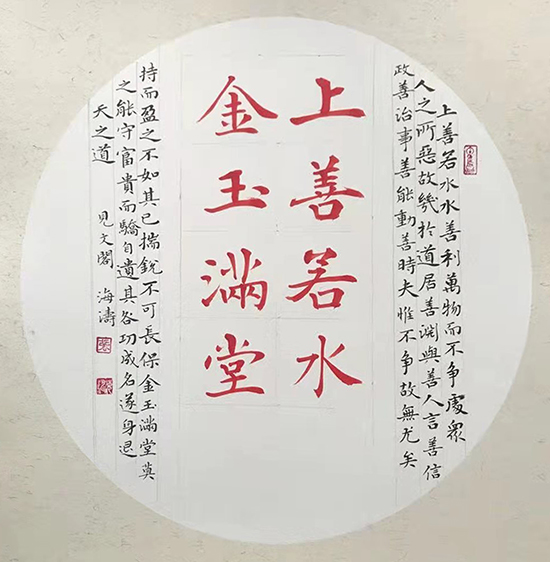 上善若水水善利萬物而不争處衆
人之所惡故幾於道居善淵與善人言善信
政善治事善能動善時夫惟不争故無尤矣
上善若水
金玉滿堂
持而盈之不如其已揣銳不可長保金玉滿堂莫
之能守富貴而驕自遺其各功成名遂身退
天之道 見文閣 海濤